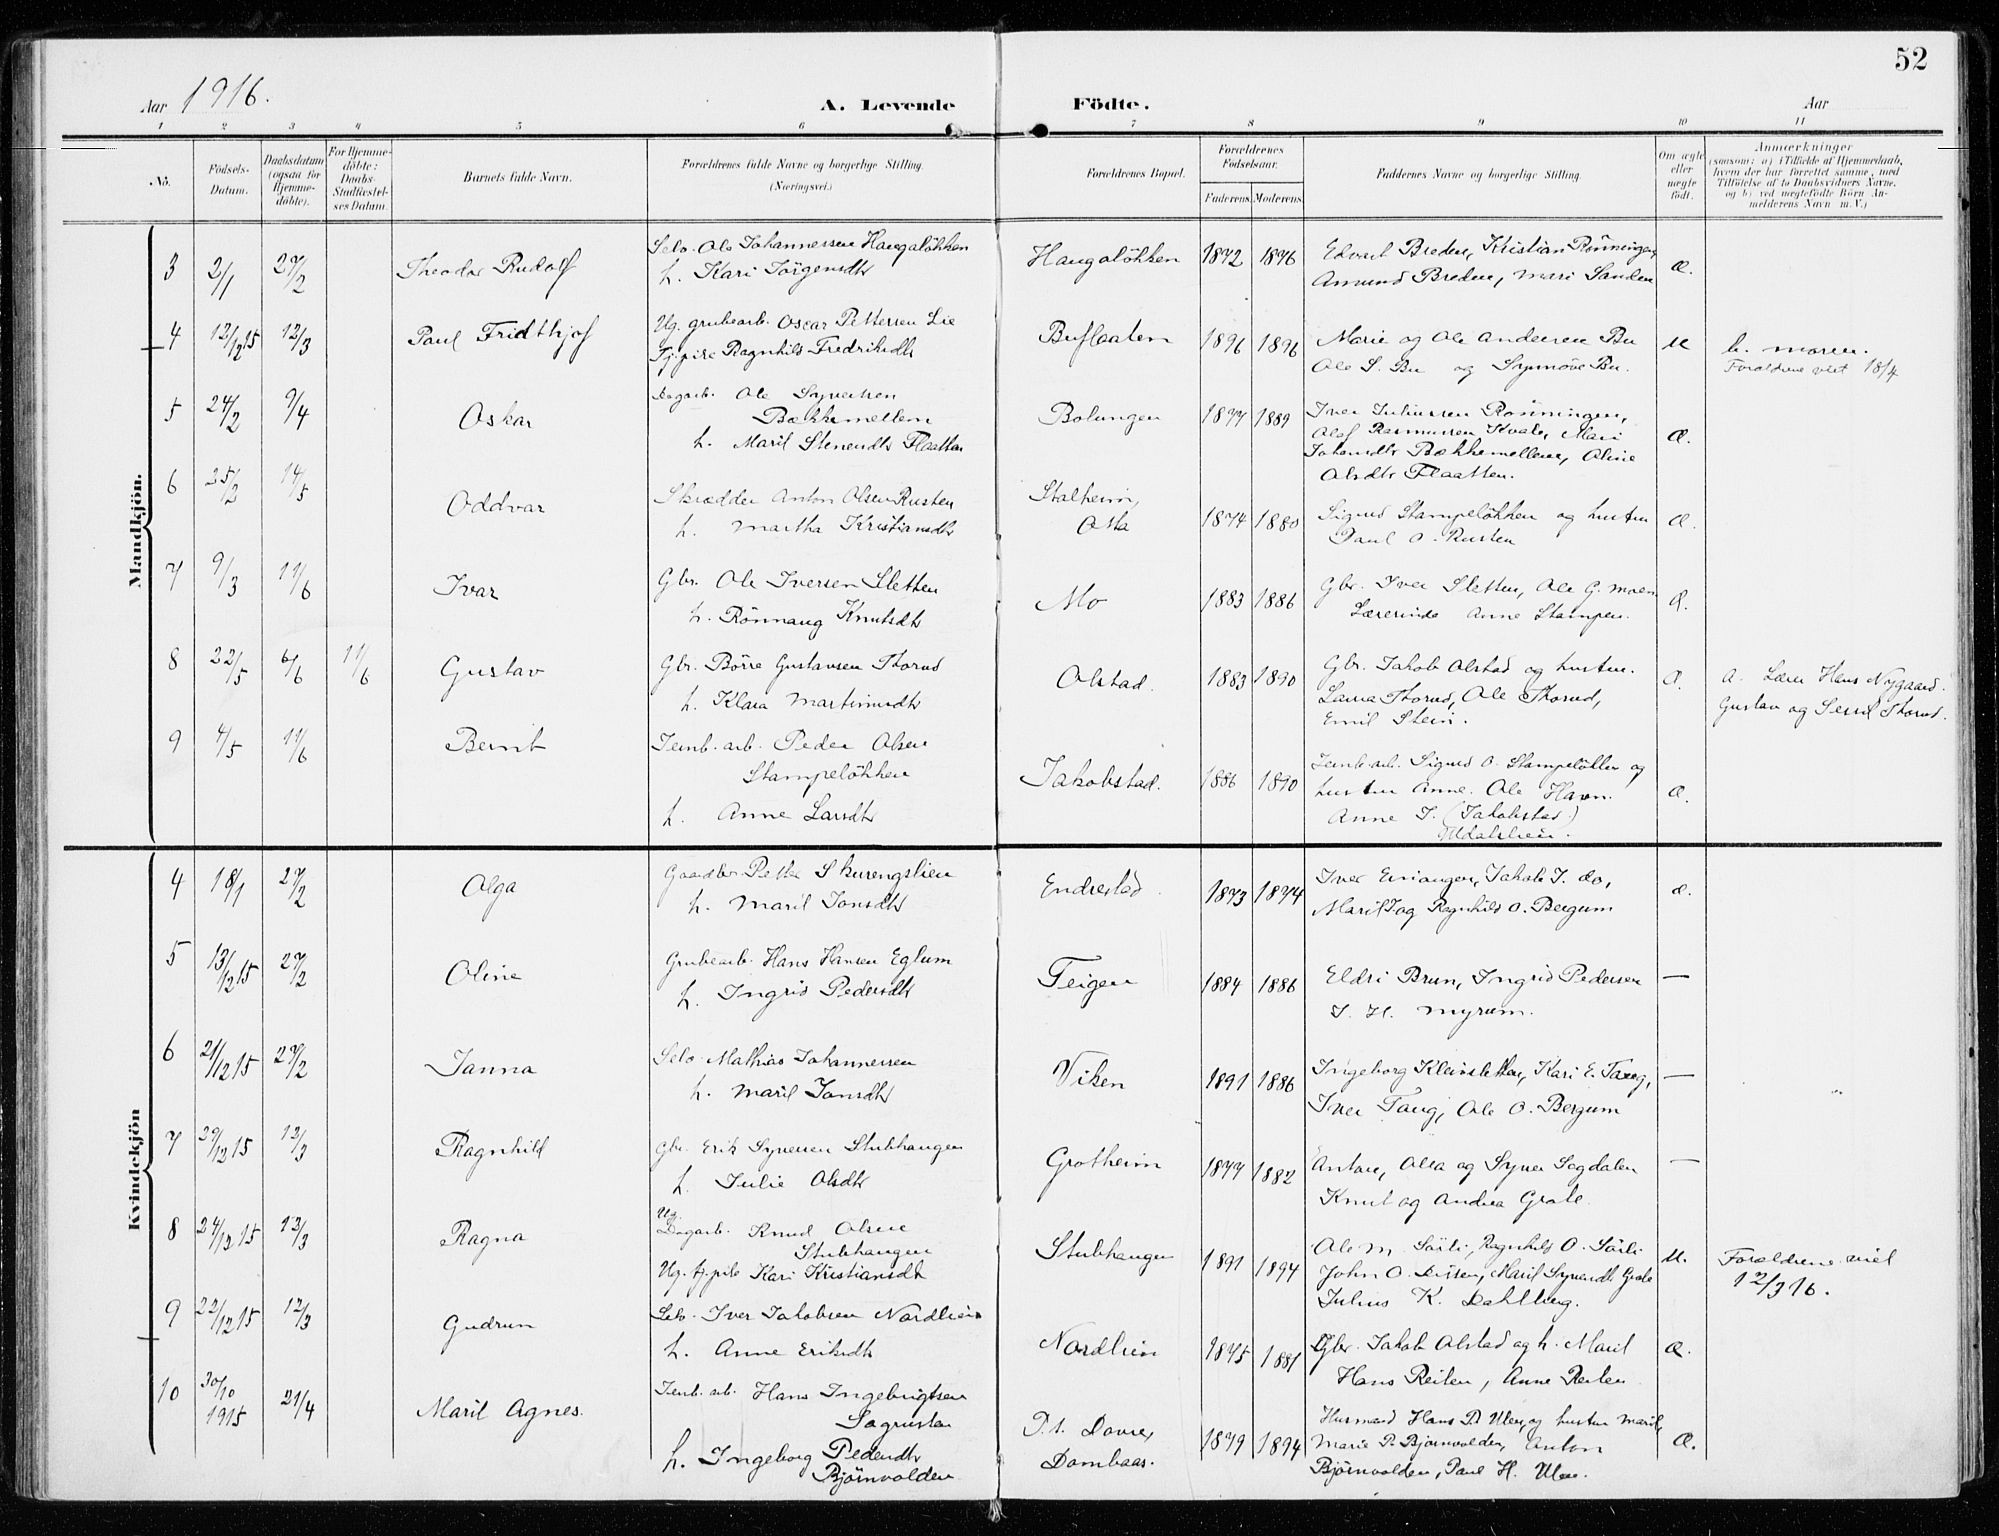 52
Aar 1916.
A. Levende Födte.
Aar
1 2 3 4 5 6 7 8 9 10 11
No.
Födsels-Datum.
Daabsdatum (ogsaa for Hjemme-döbte).
For Hjemme-döbte: Daabs-Stadfæstel-ses Datum.
Barnets fulde Navn.
Forældrenes fulde Navne og borgerlige Stilling.
(Næringsvei.)
Forældrenes Bopæl.
Forældrenes Födselsaar.
Faderens. Moderens.
Faddernes Navne og borgerlige Stilling.
Om ægte eller uægte födt.
Anmærkninger
(saasom: a) i Tilfælde af Hjemmedaab,
hvem der har forrettet samme, med
Tilföielse af to Daabsvidners Navne.
og b) ved uægtefödte Börn An-
melderens Navn m. V.)
Mandkjön.
3 2/1 27/2 Theodor Rudolf
Selv. Ole Johannessen Haugaløkken
h. Kari Jørgensdtr
Haugaløkken 1872 1876
Edvart Breden, Kristian Rønningen,
Amund Breden, Mari Sanden
Æ.
4 12/12 15 12/3 Paul Fridthjof
Ug. grubearb. Oscar Pettersen Lie
Tj.pike Ragnhild Fredriksdtr
Buflaaten 1896 1896
Marie og Ole Andersen Bu
Ole S. Bu og Synnøve Bu.
U
b. moren.
Forældrene viet 18/4
5 24/2 9/4 Oskar
Dagarb. Ole Syversen
Bækkemellem
h. Marit Stenersdtr Flaatten
Bolungen 1877 1889
Iver Juliussen Rønningen,
Olaf Rasmussen Kvale, Mari
Johansdtr Bækkemellem, Oline
Olsdtr Flaatten.
Æ.
6 25/2 14/5 Oddvar
Skrædder Anton Olsen Rusten
h. Martha Kristiansdtr
Stalheim,
Osta 1874 1880
Sigurd Stampeløkken og hustru
Paul O. Rusten
Æ.
7 9/3 11/6 Ivar
Gbr. Ole Iversen Sletten
h. Rønnaug Knutsdtr
Mo 1883 1886
Gbr. Iver Sletten, Ole G. Moen
Lærerinde Anne Stampen.
Æ.
8 22/5 6/6 11/6 Gustav
Gbr. Børre Gustavsen Thorud
h. Klara Martinusdtr
Olstad. 1883 1890
Gbr. Jakob Olstad og hustru.
Laura Thorud, Ole Thorud,
Emil Stein.
Æ.
a. Lærer Hans Nygaard.
Gustav og Sersel Thorud.
9 4/5 11/6 Bernt
Jernb. arb. Peder Olsen
Stampeløkken
h. Anne Larsdtr
Jakobstad. 1886 1890
Jernb. arb. Sigurd O. Stampeløkken og
hustru Anne. Ole Havn.
Anne J. (Jakobstad)
Æ.
Kvindekjön
4 18/1 27/2 Olga
Gaardbr. Petter Skurengslien
h. Marit Jonsdtr
Endrestad. 1873 1874
Iver Eriangen, Jakob J. do,
Marit J og Ragnhild O. Bergum
æ.
5 13/12 15 27/2 Oline
Grubearb. Hans Hansen Eglum
h. Ingrid Pedersdtr
Teigen 1884 1886
Eldri Brun, Ingrid Pedersen
J. H. Myrum.
—
6 21/12 15 27/2 Janna
Selv. Mathias Johannessen
h. Marit Jonsdtr
Viken 1891 1886
Ingeborg Kleivsletten, Kari E. Taug,
Iver Taug, Ole O. Bergum
—
7 29/12 15 12/3 Ragnhild
Gbr. Erik Syversen Stubhaugen
h. Julie Olsdtr
Grotheim 1877 1882
Anton, Olea og Syver Sogdalen
Knut og Andrea Grote.
—
8 24/12 15 12/3 Ragna
Ug.
Dagarb. Knud Olsen
Stubhaugen
Ug. tj.pike Kari Kristiansdtr
Stubhaugen 1891 1894
Ole M. Sørli, Ragnhild O. Sørli
John O. Dissen, Marit Syversdtr Grote
Julius K. Dahlberg.
U.
Forældrene viet
12/3 16.
9 22/12 15 12/3 Gudrun
Selv. Iver Jakobsen Nordlien
h. Anne Eriksdtr
Nordlien 1875 1881
Gbr. Jakob Olstad og h. Marit
Hans Reiten, Anne Reiten
Æ.
10 30/10 1915 21/4 Marit Agnes.
Jernb. arb. Hans Ingebrigtsen
Sagrusten
h. Ingeborg Pedersdtr
Bjørnvolden
P.t. Dovre,
Dombaas. 1879 1894
Husmand Hans P. Ulen, og hustru Marit,
Marie P. Bjørnvolden, Anton
Bjørnvolden, Paul H. Ulen.
Æ.